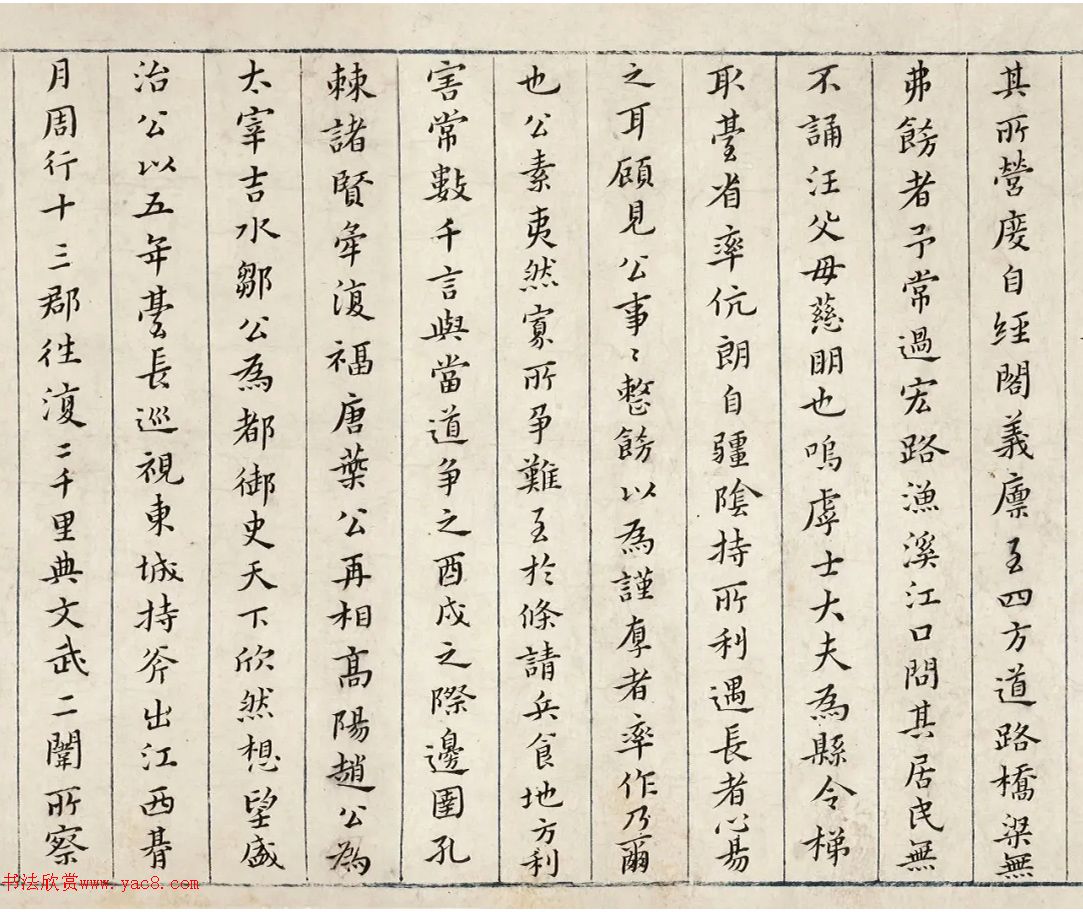 其所營度自經閣義廩至四方道路橋梁無
弗飭者予常過宏路漁溪江口問其居民無
不誦汪父母慈明也嗚虖士大夫為縣令梯
取臺省率伉朗自疆陰持所利遇長者心易
之耳顧見公事〻整飭以為謹厚者率作乃爾
也公素夷然寡所爭難至於條請兵食地方利
害常數千言與當道爭之酉戌之際邊圉孔
棘諸賢牽復福唐葉公再相高陽趙公為
太宰吉水鄒公為都御史天下欣然想望盛
治公以五年臺長巡視東城持斧出江西朞
月周行十三郡往復二千里典文武二闈所察
书法欣赏www.yac8.com